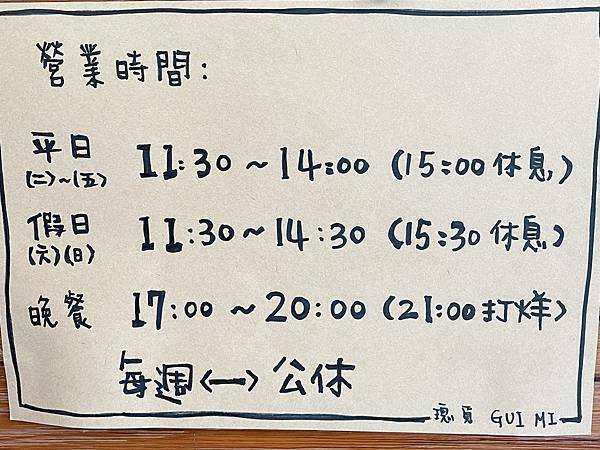 營業時間:
平日 11:30~14:00 (15:00休息)
(二)~(五)
假日 11:30~14:30 (15:30休息)
(六)(日)
晚餐 17:00~20:00 (21:00打烊)
每週<一>公休
GUI MI